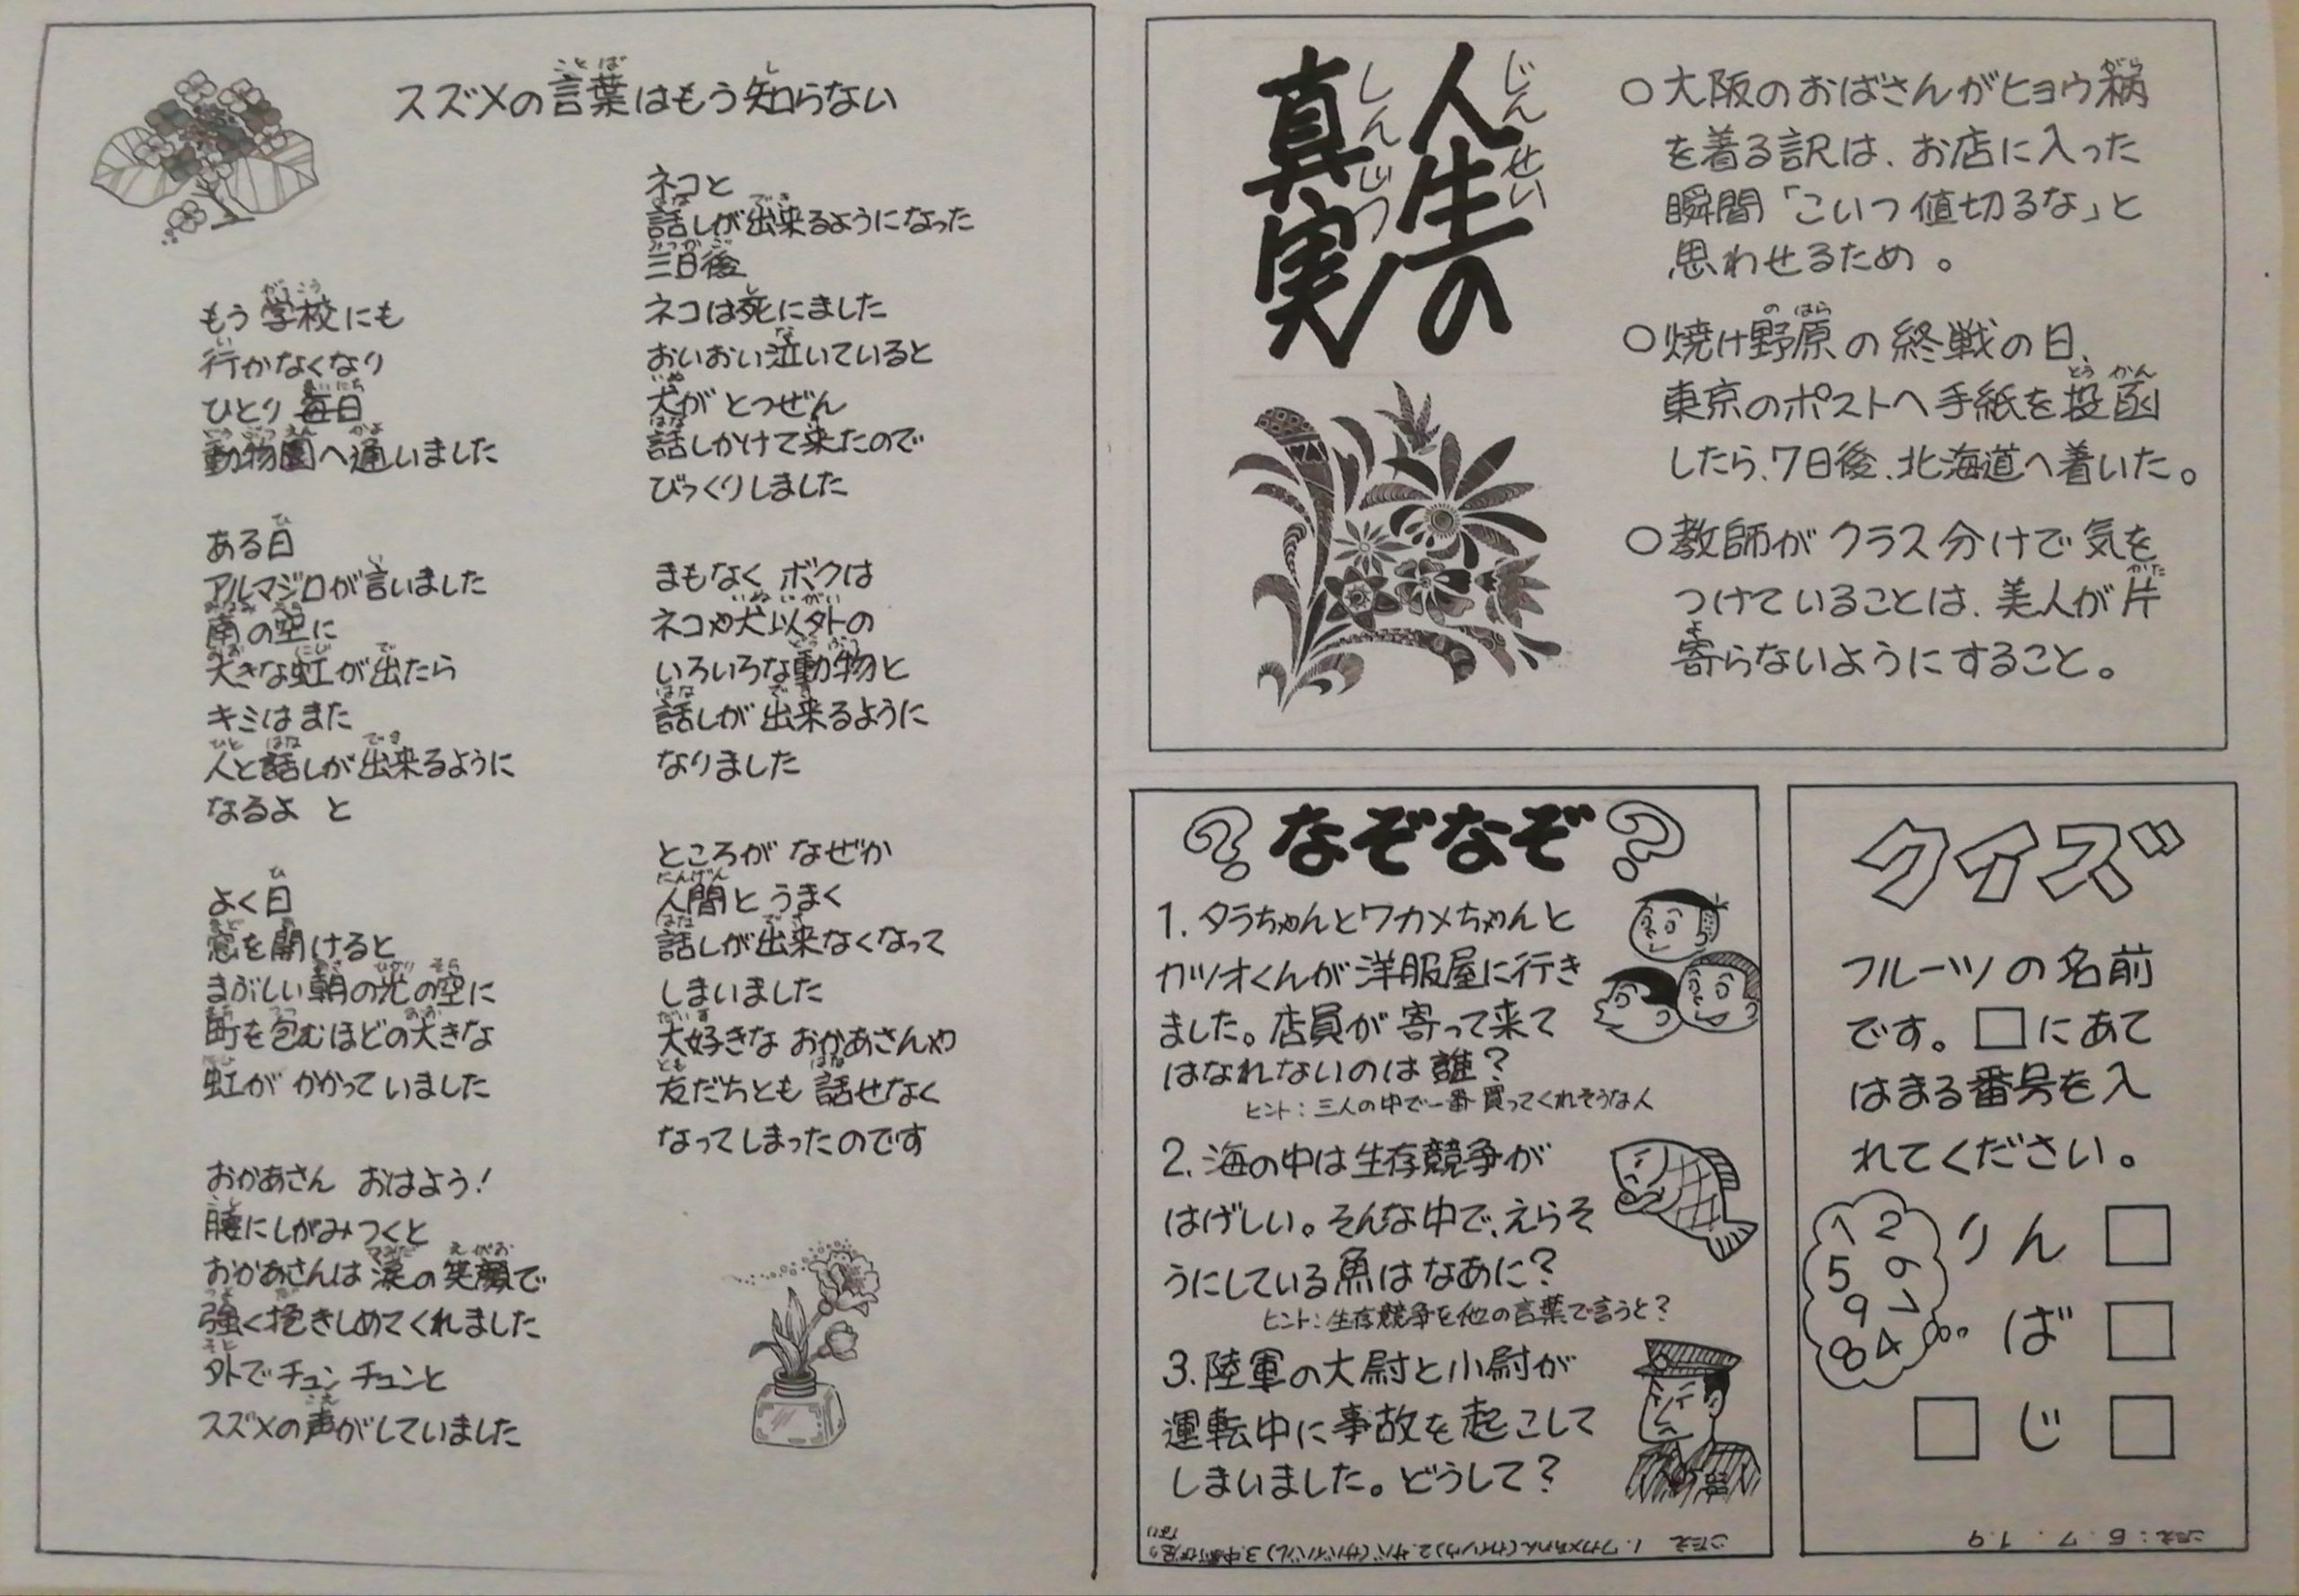 スズメの言葉はもう知らない
もう学校にも
行かなくなり
ひとり 毎日
動物園へ通いました
ある日
アルマジロが言いました
南の空に
大きな虹が出たら
キミはまた
人と話しが出来るように
なるよ と
よく日
窓を開けると
まぶしい朝の光の空に
町を包むほどの大きな
虹が かかっていました
おかあさん おはよう!
腰にしがみつくと
おかあさんは涙の笑顔で
強く抱きしめてくれました
外でチュンチュンと
スズメの声がしていました
ネコと
話しが出来るようになった
三日後
ネコは死にました
おいおい泣いていると
犬が とつぜん
話しかけて来たので
びっくりしました
まもなく ボクは
ネコや犬以外の
いろいろな動物と
話しが出来るように
なりました
ところが なぜか
人間と うまく
話しが出来なくなって
しまいました
大好きな おかあさんや
友だちとも 話せなく
なってしまったのです
人生の
真実
○大阪のおばさんがヒョウ柄
を着る訳は、お店に入った
瞬間「こいつ値切るな」と
思わせるため。
○焼け野原の終戦の日、
東京のポストへ手紙を投函
したら、7日後、北海道へ着いた。
○教師がクラス分けで気を
つけていることは、美人が片
寄らないようにすること。
?なぞなぞ?
1. タラちゃんとワカメちゃんと
カツオくんが洋服屋に行き
ました。店員が寄って来て
はなれないのは誰?
ヒント:三人の中で一番買ってくれそうな人
2. 海の中は生存競争が
はげしい。そんな中で、えらそ
うにしている魚はなあに?
ヒント:生存競争を他の言葉で言うと?
3. 陸軍の大尉と小尉が
運転中に事故を起こして
しまいました。どうして?
こたえ 1. ワカメちゃん(カイソウ) 2. サバ(サバイバル) 3.
クイズ
フルーツの名前
です。□にあて
はまる番号を入
れてください。
1 2
5 6
9 7
8 4
りん□
ば□
□じ□
こたえ:5. 7. 19